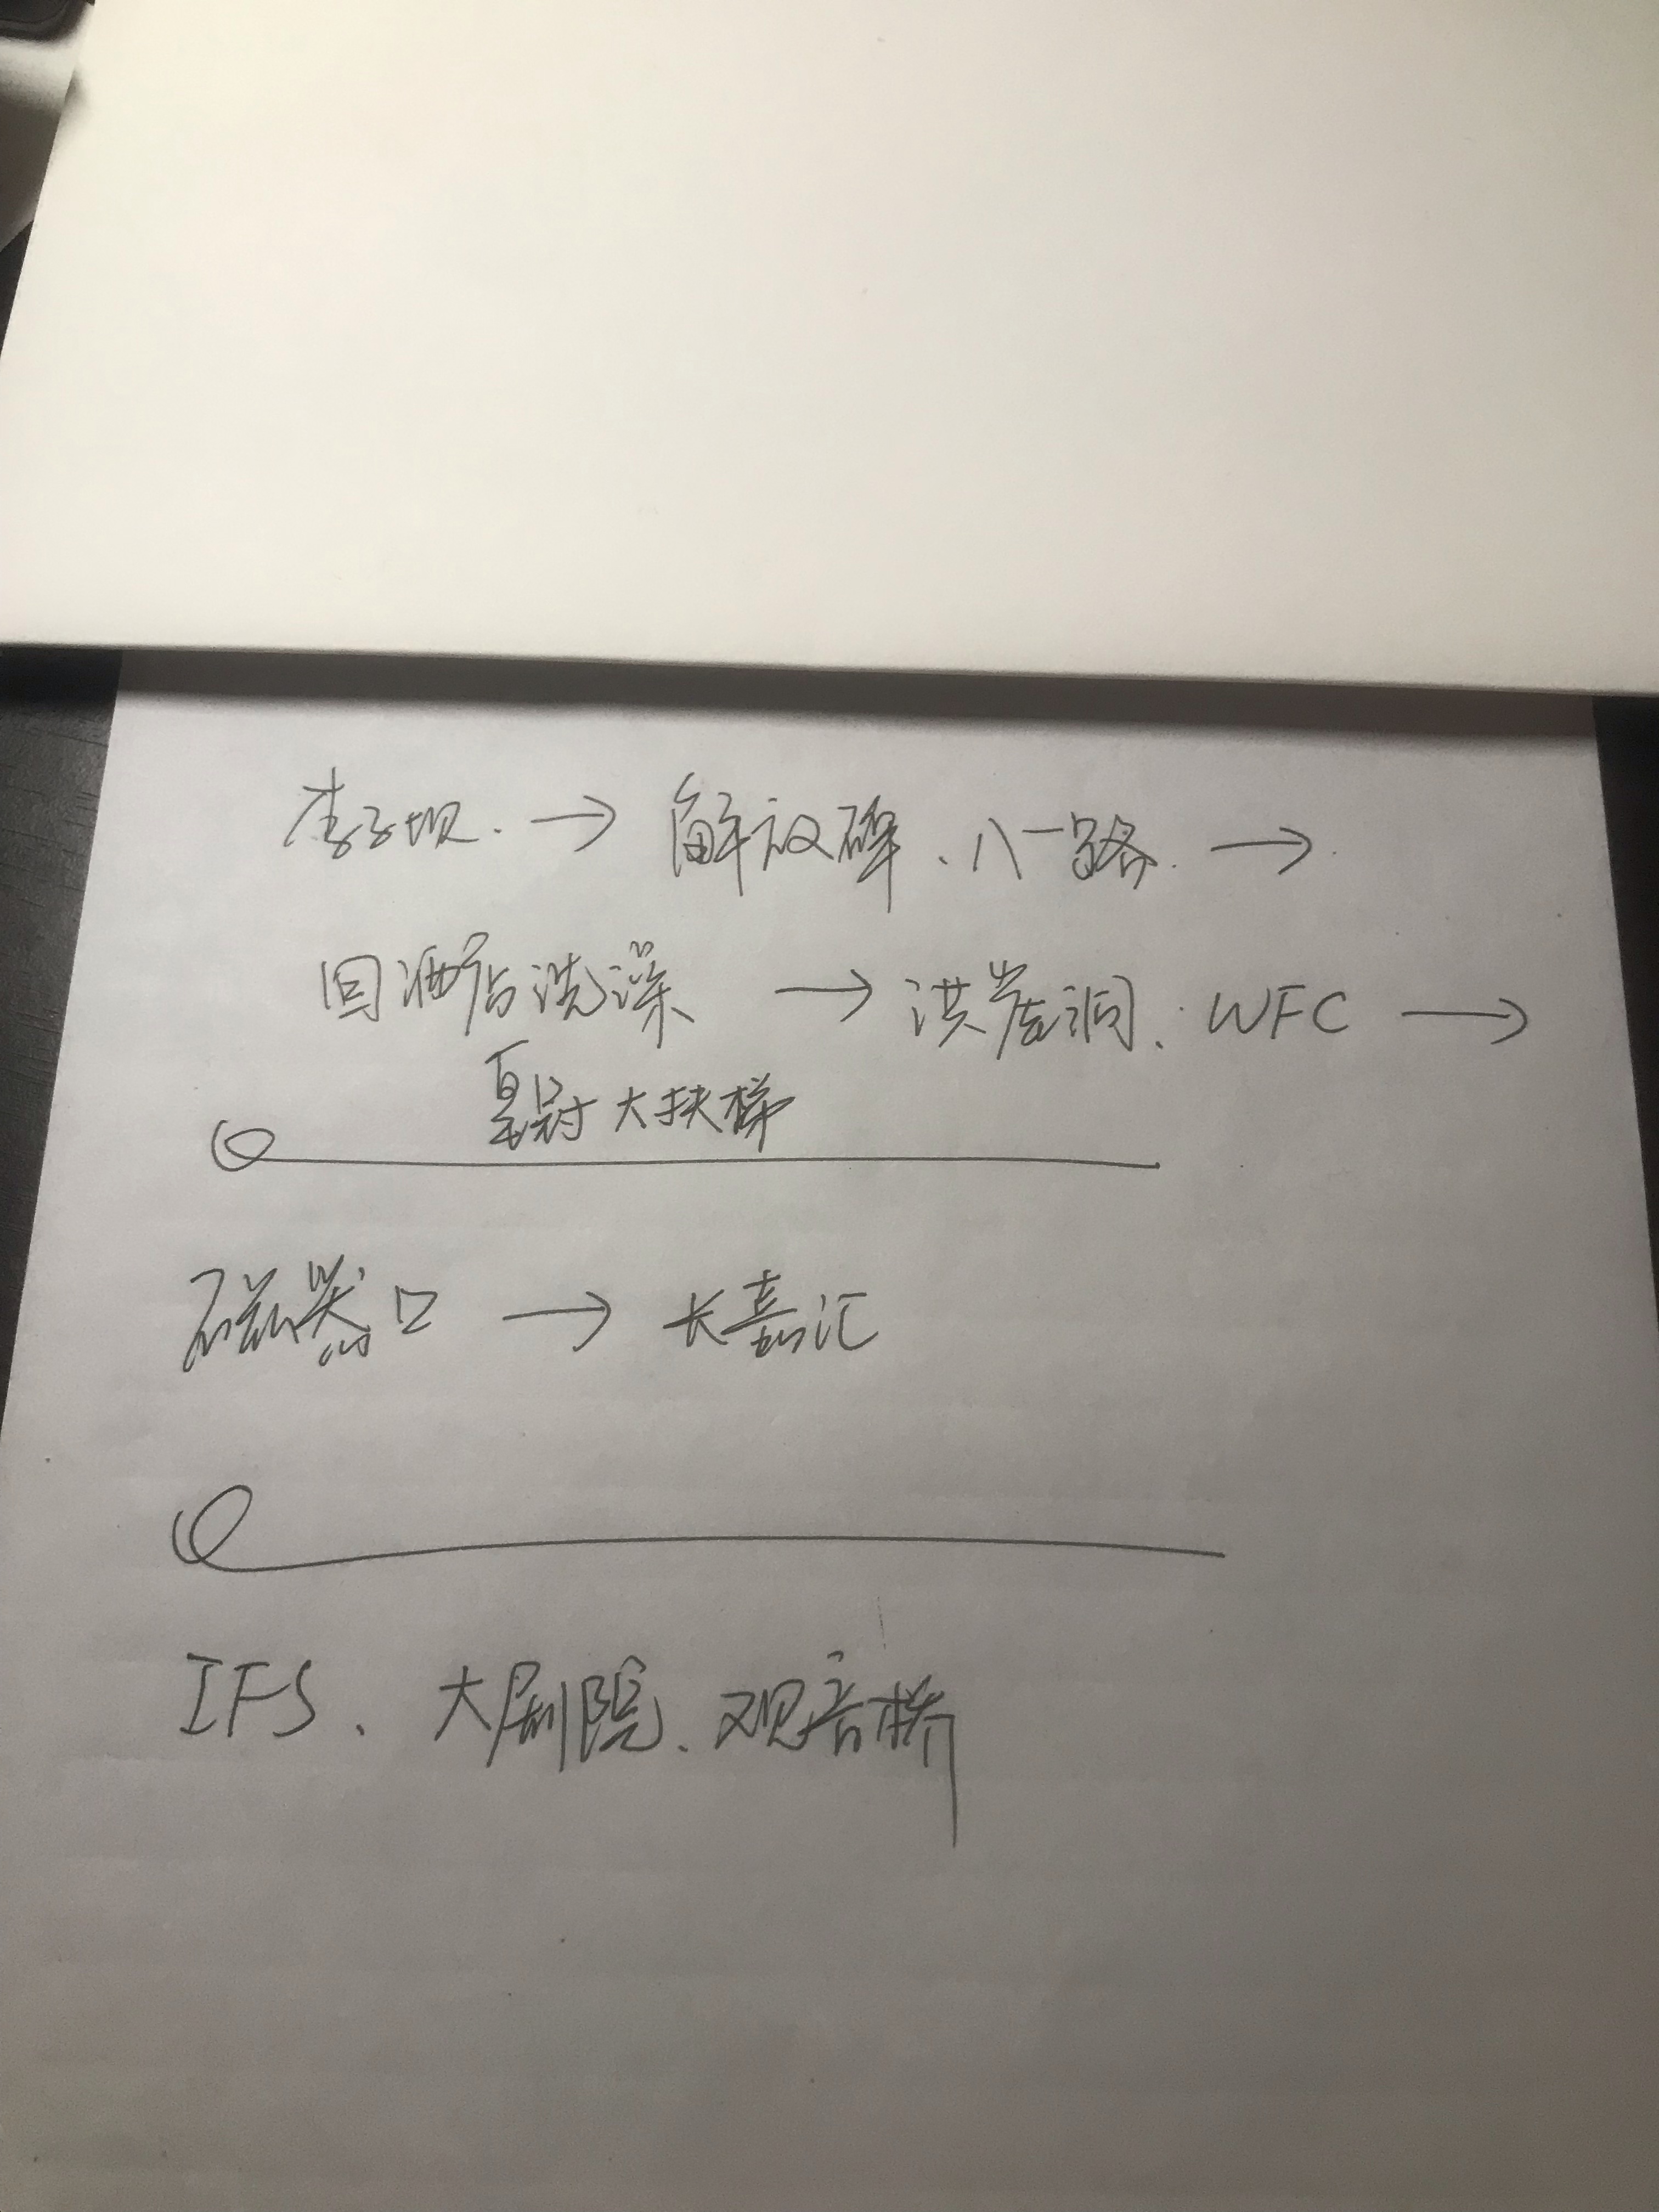 李子坝. → 解放碑、八一路. →
回酒店洗澡 → 洪崖洞、WFC →
皇冠大扶梯
磁器口 → 长嘉汇
IFS、大剧院、观音桥